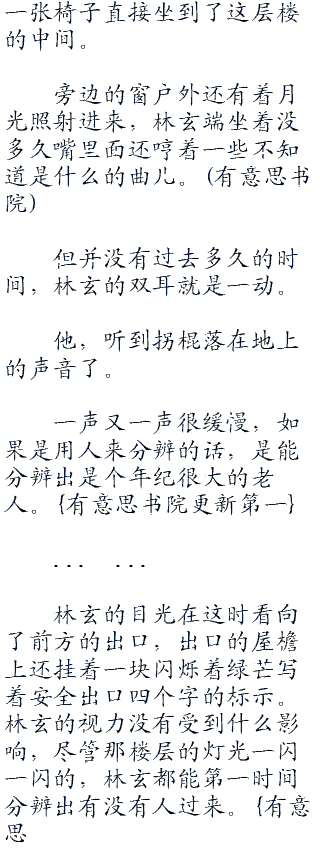 一张椅子直接坐到了这层楼
的中间。
旁边的窗户外还有着月
光照射进来，林玄端坐着没
多久嘴里面还哼着一些不知
道是什么的曲儿。(有意思书
院)
但并没有过去多久的时
间，林玄的双耳就是一动。
他，听到拐棍落在地上
的声音了。
一声又一声很缓慢，如
果是用人来分辨的话，是能
分辨出是个年纪很大的老
人。{有意思书院更新第一}
... ...
林玄的目光在这时看向
了前方的出口，出口的屋檐
上还挂着一块闪烁着绿芒写
着安全出口四个字的标示。
林玄的视力没有受到什么影
响，尽管那楼层的灯光一闪
一闪的，林玄都能第一时间
分辨出有没有人过来。{有意
思